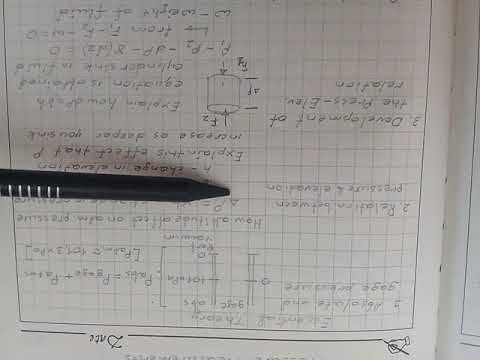 Date
Essential Theory
1. Absolute and
gage pressure
gage abs
0 101kPa
0
Perf
vacuum
Pabs = Pgage + Patm
[Patm = 101,3 kPa]
2. Relation between
pressure & elevation
How altitude effect on atm pressure
h - change in elevation
Explain this effect that P
increase as deeper you sink
3. Development of
the Press-Elev.
relation
F2
ΔP
F1
Explain how dP/dh
equation is obtained
cylinder sink in fluid
P1 - P2 - dP - γ(dz) = 0
↳ F1 - F2 - w = 0
w - weight of fluid